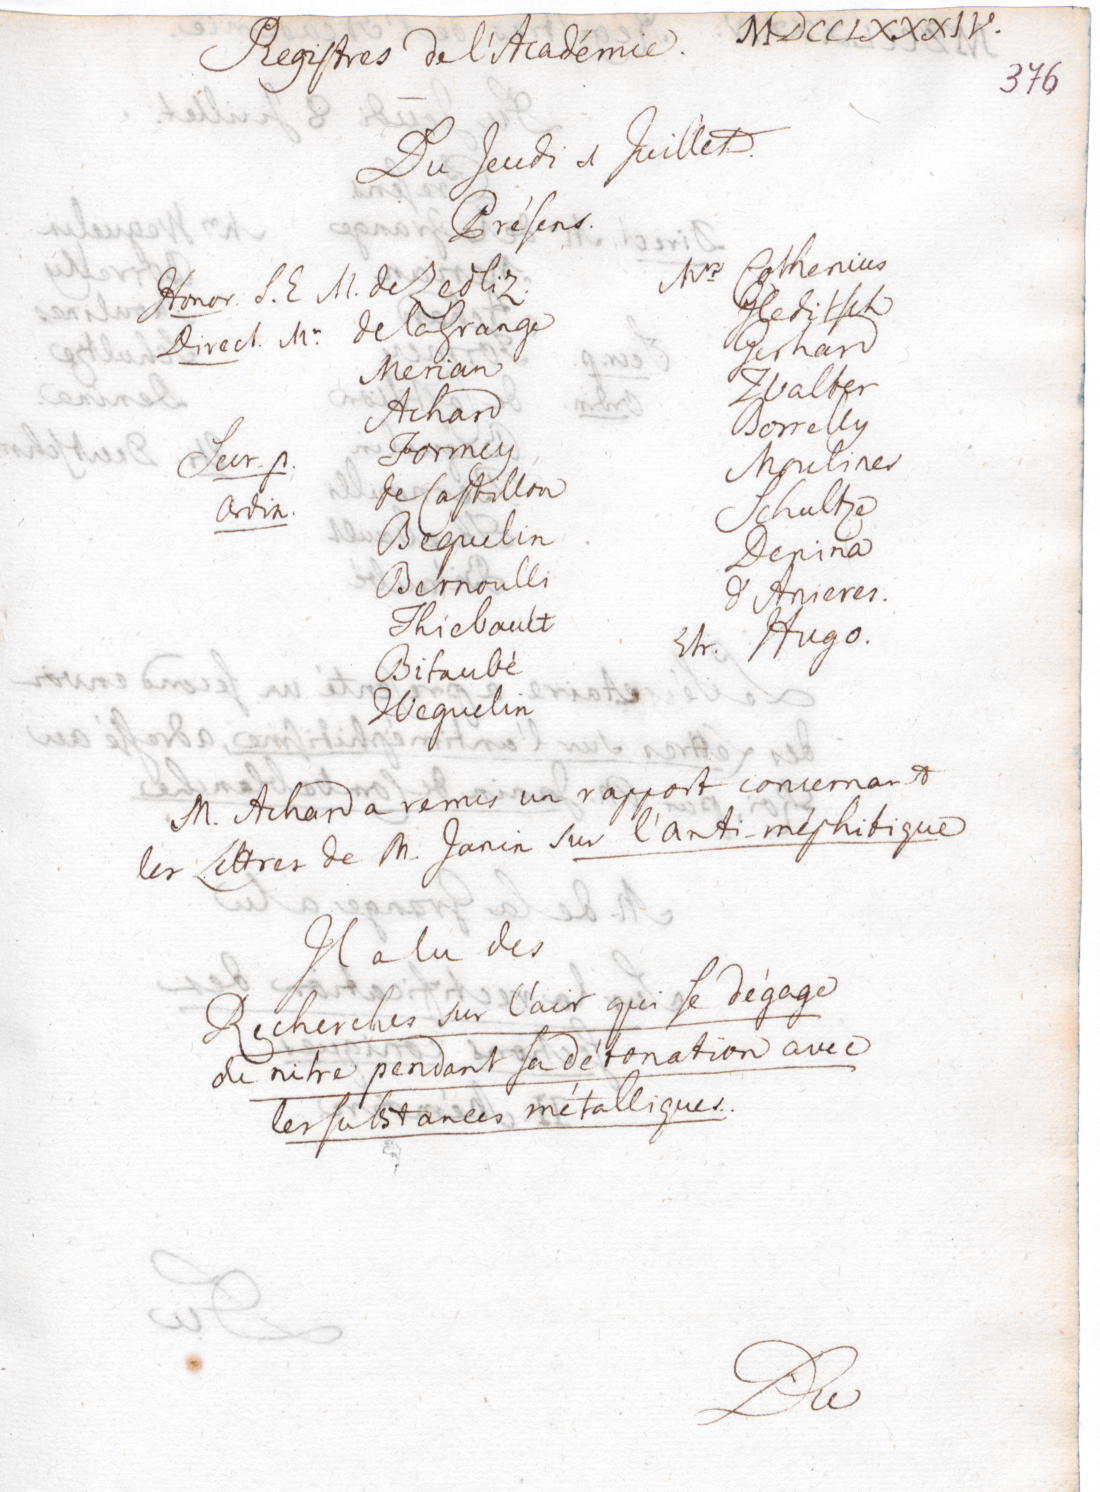 Registres de l'Académie. MDCCLXXXIV.
376
Du Jeudi 1 Juillet.
Présens.
Honor. S. E. M. de Zedliz.
Direct. Mr. de la Grange
Merian
Achard
Secr. p. Formey
Ordin. de Castillon
Beguelin
Bernoulli
Thiebault
Bitaubé
Weguelin
Mrs Cothenius
Gleditsch
Gerhard
Walter
Borrelly
Moulines
Schultze
Denina
d'Anieres.
Etr. Hugo.
M. Achard a remis un rapport concernant
les Lettres de M. Janin sur l'anti-méphitique
Il a lu des
Recherches sur l'air qui se dégage
du nitre pendant sa détonation avec
les substances métalliques.
Du